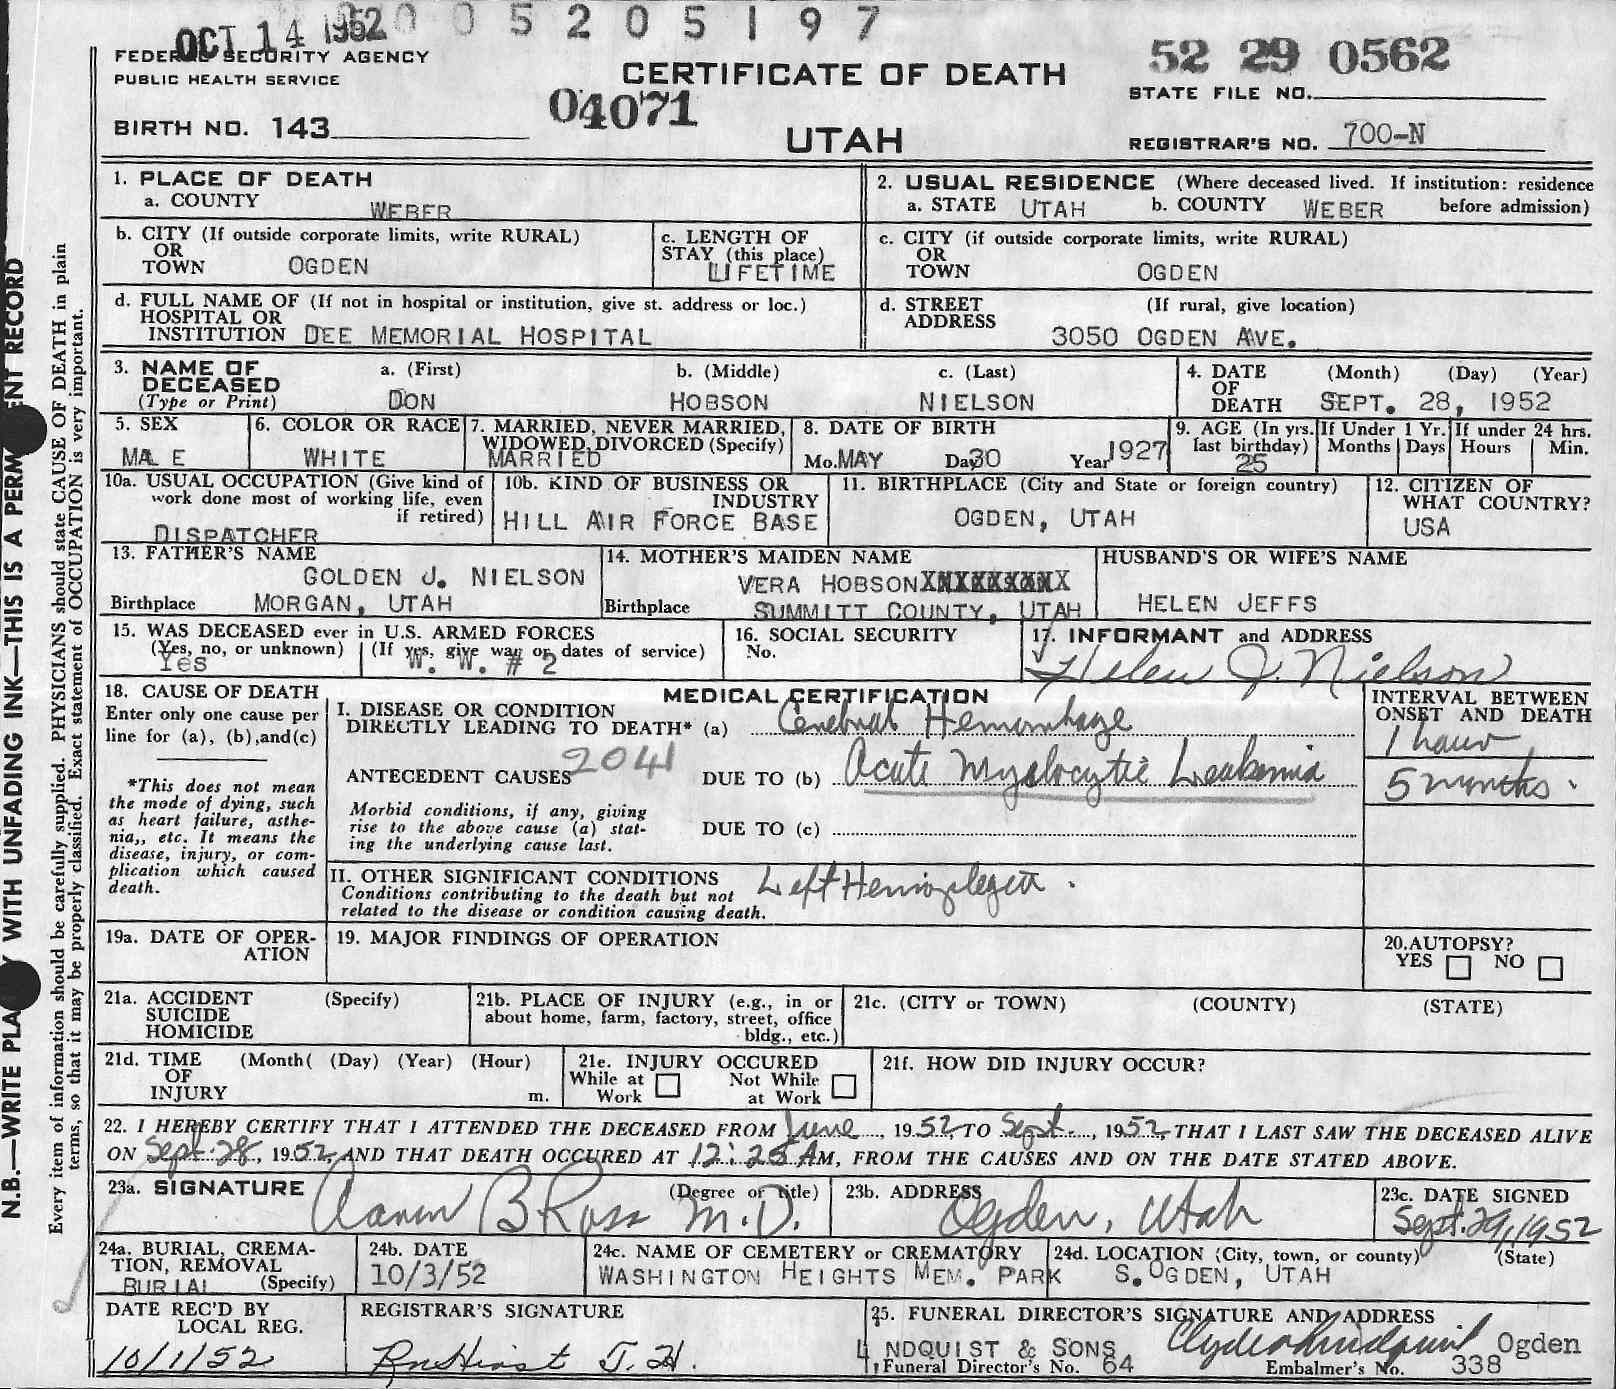 OCT 14 1952 0 0 5 2 0 5 1 9 7
FEDERAL SECURITY AGENCY
PUBLIC HEALTH SERVICE
CERTIFICATE OF DEATH
52 29 0562
STATE FILE NO.
04071
BIRTH NO. 143
UTAH
REGISTRAR'S NO. 700-N
1. PLACE OF DEATH
a. COUNTY WEBER
2. USUAL RESIDENCE (Where deceased lived. If institution: residence
a. STATE UTAH b. COUNTY WEBER before admission)
b. CITY (If outside corporate limits, write RURAL)
OR
TOWN OGDEN
c. LENGTH OF
STAY (this place)
LIFETIME
c. CITY (if outside corporate limits, write RURAL)
OR
TOWN OGDEN
d. FULL NAME OF (If not in hospital or institution, give st. address or loc.)
HOSPITAL OR
INSTITUTION DEE MEMORIAL HOSPITAL
d. STREET (If rural, give location)
ADDRESS
3050 OGDEN AVE.
3. NAME OF a. (First) b. (Middle) c. (Last)
DECEASED
(Type or Print) DON HOBSON NIELSON
4. DATE (Month) (Day) (Year)
OF
DEATH SEPT. 28, 1952
5. SEX
MALE
6. COLOR OR RACE
WHITE
7. MARRIED, NEVER MARRIED,
WIDOWED, DIVORCED (Specify)
MARRIED
8. DATE OF BIRTH
Mo. MAY Day 30 Year 1927
9. AGE (In yrs.
last birthday)
25
If Under 1 Yr.
Months Days
If under 24 hrs.
Hours Min.
10a. USUAL OCCUPATION (Give kind of
work done most of working life, even
if retired)
DISPATCHER
10b. KIND OF BUSINESS OR
INDUSTRY
HILL AIR FORCE BASE
11. BIRTHPLACE (City and State or foreign country)
OGDEN, UTAH
12. CITIZEN OF
WHAT COUNTRY?
USA
13. FATHER'S NAME
GOLDEN J. NIELSON
Birthplace MORGAN, UTAH
14. MOTHER'S MAIDEN NAME
VERA HOBSON
Birthplace SUMMITT COUNTY, UTAH
HUSBAND'S OR WIFE'S NAME
HELEN JEFFS
15. WAS DECEASED ever in U.S. ARMED FORCES
(Yes, no, or unknown) (If yes, give war or dates of service)
Yes W. W. # 2
16. SOCIAL SECURITY
No.
17. INFORMANT and ADDRESS
Helen J. Nielson
18. CAUSE OF DEATH
Enter only one cause per
line for (a), (b), and (c)
*This does not mean
the mode of dying, such
as heart failure, asthe-
nia,, etc. It means the
disease, injury, or com-
plication which caused
death.
MEDICAL CERTIFICATION
I. DISEASE OR CONDITION
DIRECTLY LEADING TO DEATH* (a) Cerebral Hemorrhage
ANTECEDENT CAUSES 2041 DUE TO (b) Acute Myelocytic Leukemia
Morbid conditions, if any, giving
rise to the above cause (a) stat-
ing the underlying cause last.
DUE TO (c)
INTERVAL BETWEEN
ONSET AND DEATH
1 hour
5 months.
II. OTHER SIGNIFICANT CONDITIONS Left Hemiplegia.
Conditions contributing to the death but not
related to the disease or condition causing death.
19a. DATE OF OPER-
ATION
19. MAJOR FINDINGS OF OPERATION
20. AUTOPSY?
YES NO
21a. ACCIDENT (Specify)
SUICIDE
HOMICIDE
21b. PLACE OF INJURY (e.g., in or
about home, farm, factory, street, office
bldg., etc.)
21c. (CITY or TOWN) (COUNTY) (STATE)
21d. TIME (Month( (Day) (Year) (Hour)
OF
INJURY m.
21e. INJURY OCCURED
While at Not While
Work at Work
21f. HOW DID INJURY OCCUR?
22. I HEREBY CERTIFY THAT I ATTENDED THE DECEASED FROM June, 1952, TO Sept., 1952, THAT I LAST SAW THE DECEASED ALIVE
ON Sept. 28, 1952, AND THAT DEATH OCCURED AT 12:25 AM, FROM THE CAUSES AND ON THE DATE STATED ABOVE.
23a. SIGNATURE (Degree or title)
Aaron B Ross M.D.
23b. ADDRESS
Ogden, Utah
23c. DATE SIGNED
Sept. 29, 1952
24a. BURIAL, CREMA-
TION, REMOVAL
BURIAL (Specify)
24b. DATE
10/3/52
24c. NAME OF CEMETERY or CREMATORY
WASHINGTON HEIGHTS MEM. PARK
24d. LOCATION (City, town, or county) (State)
S. OGDEN, UTAH
DATE REC'D BY
LOCAL REG.
10/1/52
REGISTRAR'S SIGNATURE
25. FUNERAL DIRECTOR'S SIGNATURE AND ADDRESS
NDQUIST & SONS Ogden
Funeral Director's No. 64 Embalmer's No. 338
N.B.—WRITE PLA Y WITH UNFADING INK—THIS IS A PERM ENT RECORD
Every item of information should be carefully supplied. PHYSICIANS should state CAUSE OF DEATH in plain
terms, so that it may be properly classified. Exact statement of OCCUPATION is very important.